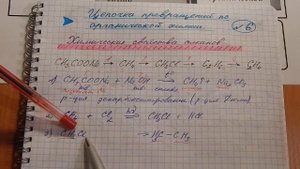 Цепочка превращений по
органической химии
№6
Химические свойства алканов
CH₃COONa → CH₄ → CH₃Cl → C₂H₆ →
1) CH₃COONa + NaOH → CH₄↑ + Na₂CO₃
р-ция декарбоксилирования (р-ция Дюма)
2) + Cl₂ → CH₃Cl + HCl
3) CH₃Cl → H₃C – CH₃